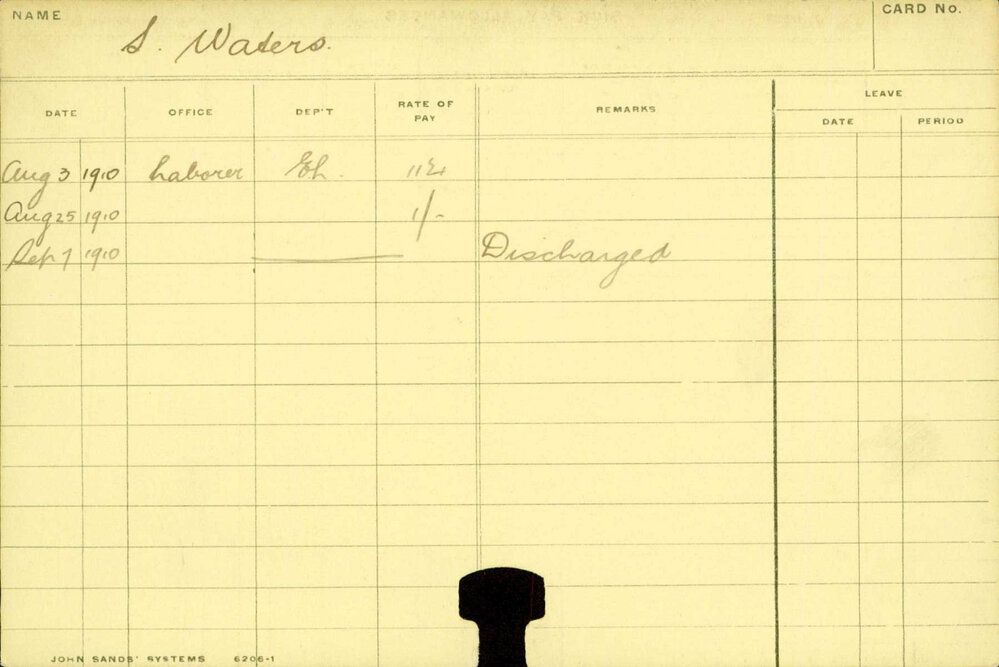 NAME S. Waters. CARD No.
DATE OFFICE DEP'T RATE OF PAY REMARKS LEAVE
DATE PERIOD
Aug 3 1910 Laborer
Aug 25 1910 1/-
Sep 7 1910 Discharged
JOHN SANDS' SYSTEMS 6206-1